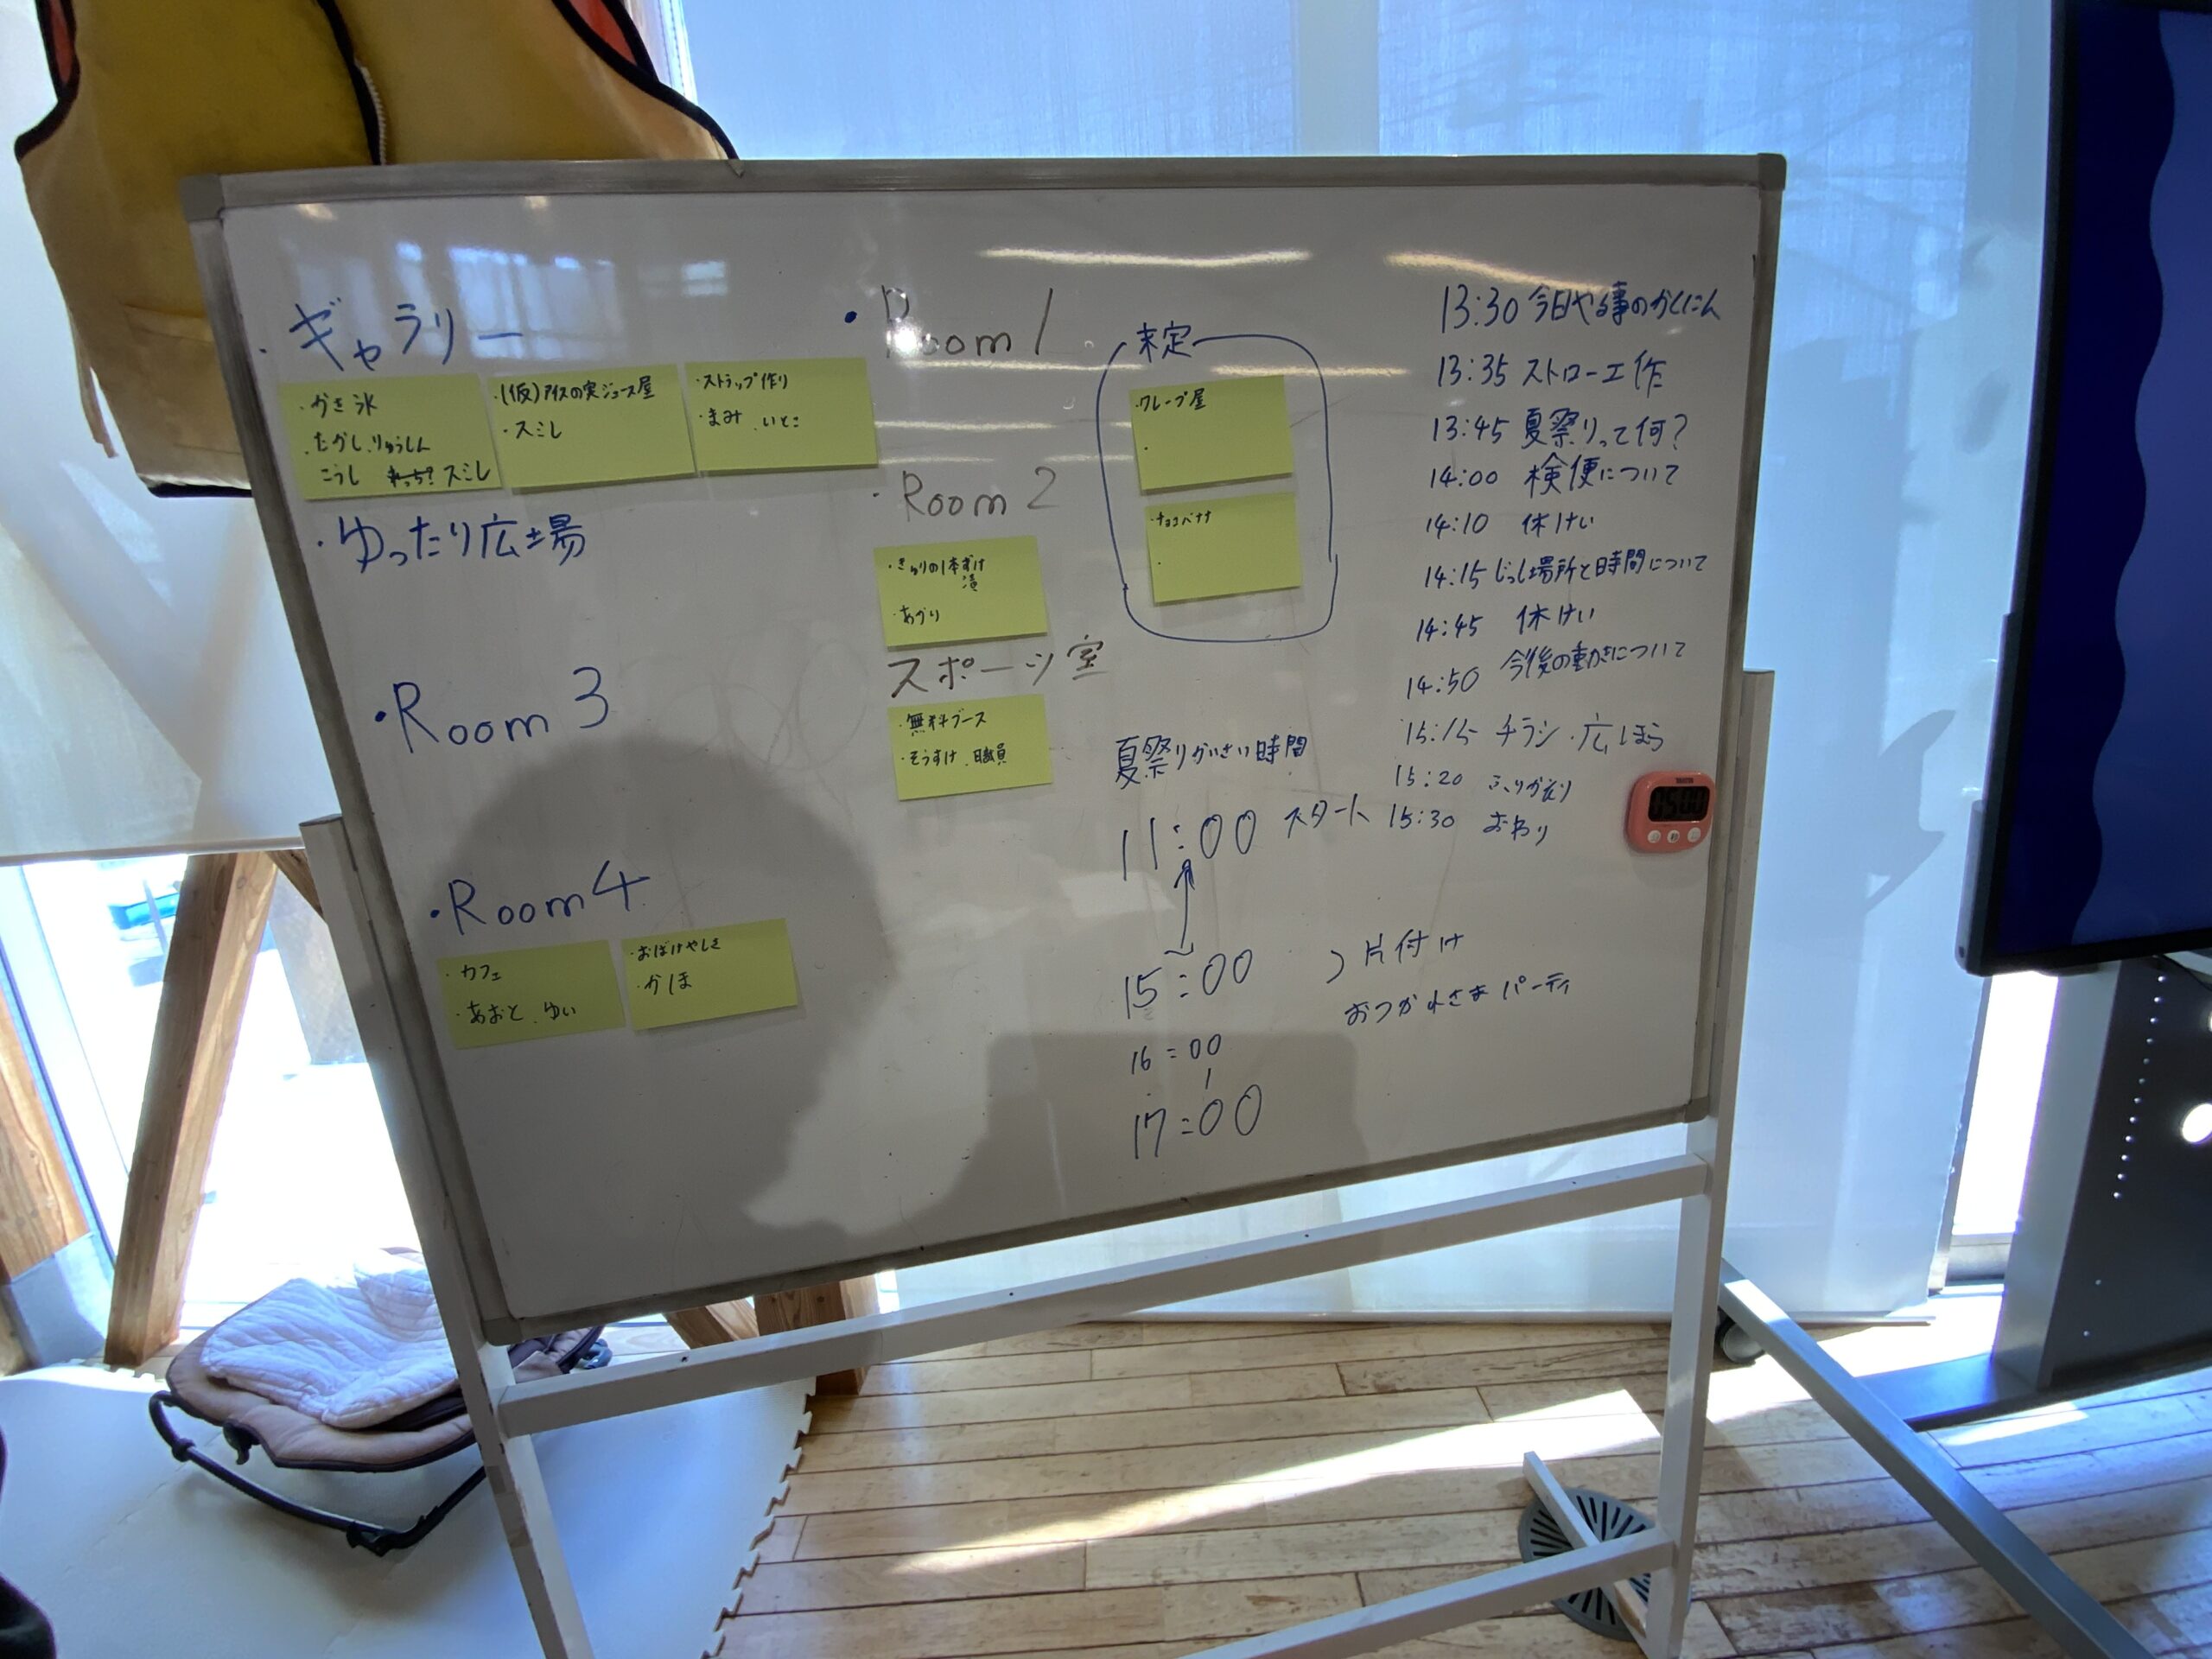 ・ギャラリー
・かき氷
・たかし、りゅうしん
こうし スミレ
・(仮)アイスの実ジュース屋
・スミレ
・ストラップ作り
・まみ、いとこ
・ゆったり広場
・Room 3
・Room 4
・カフェ
・あおと、ゆい
・おばけやしき
・かほ
・Room 1
・Room 2
・きゅうりの1本ずけ
漬
・あかり
スポーツ室
・無料ブース
・そうすけ、職員
未定
・クレープ屋
・
・チョコバナナ
・
夏祭りかいさい時間
11:00 スタート
15:00
16:00
17:00
片付け
おつかれさまパーティ
13:30 今日やる事のかくにん
13:35 ストロー工作
13:45 夏祭りって何?
14:00 検便について
14:10 休けい
14:15 じっし場所と時間について
14:45 休けい
14:50 今後の動きについて
15:15 チラシ・広ほう
15:20 ふりかえり
15:30 おわり